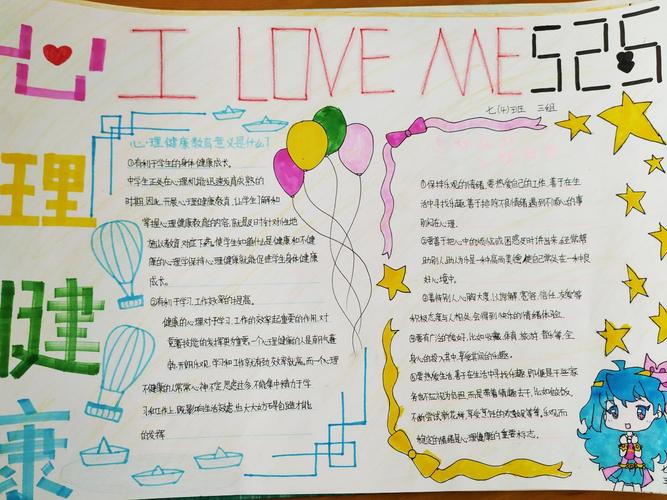 心理健康
I LOVE ME 525
七(4)班 三组
心理健康教育意义是什么?
①有利于学生的身体健康成长。
中学生正处在心理机能迅速发育成熟的
时期,因此,开展心理健康教育,让学生了解和
掌握心理健康教育的内容,就是及时针对性地
施以教育,对症下药,使学生知道什么是健康和不健
康的心理学保持心理健康就能促使学生身体健康
成长。
②有利于学习、工作效率的提高。
健康的心理对于学习、工作的效率起重要的作用,对
更重要。一个心理健康的人是朝气蓬
勃,开朗乐观,学习和工作就有劲,效率就高。而一个心理
不健康的人常常心神不定思虑过多,不能集中精力于学
习和工作上,既影响生活交往,也大大妨碍自己才能
的发挥
①保持乐观的情绪,要热爱自己的工作,善于在生
活中寻找乐趣,善于排除不良情绪,遇到不顺心的事
别闷在心里。
②要善于把心中的烦恼或困惑及时讲出来,还常帮
助别人,助人为乐是一种高尚美德,使自己常处在一种良
好心境中。
③善待别人,心胸大度,以谅解、宽容、信任、友爱等
积极态度与人相处,会得到快乐的情绪体验。
④要有广泛的爱好,比如收藏、体育、旅游、音乐等,全
身心的投入其中,享受当中的乐趣。
⑤要热爱生活,善于在生活中寻找乐趣,即便是干些家
务也不应视为负担,而是带着情趣去干,比如做饭,
不断尝试新花样,享受烹饪的
稳定的情绪是心理健康的重要标志。